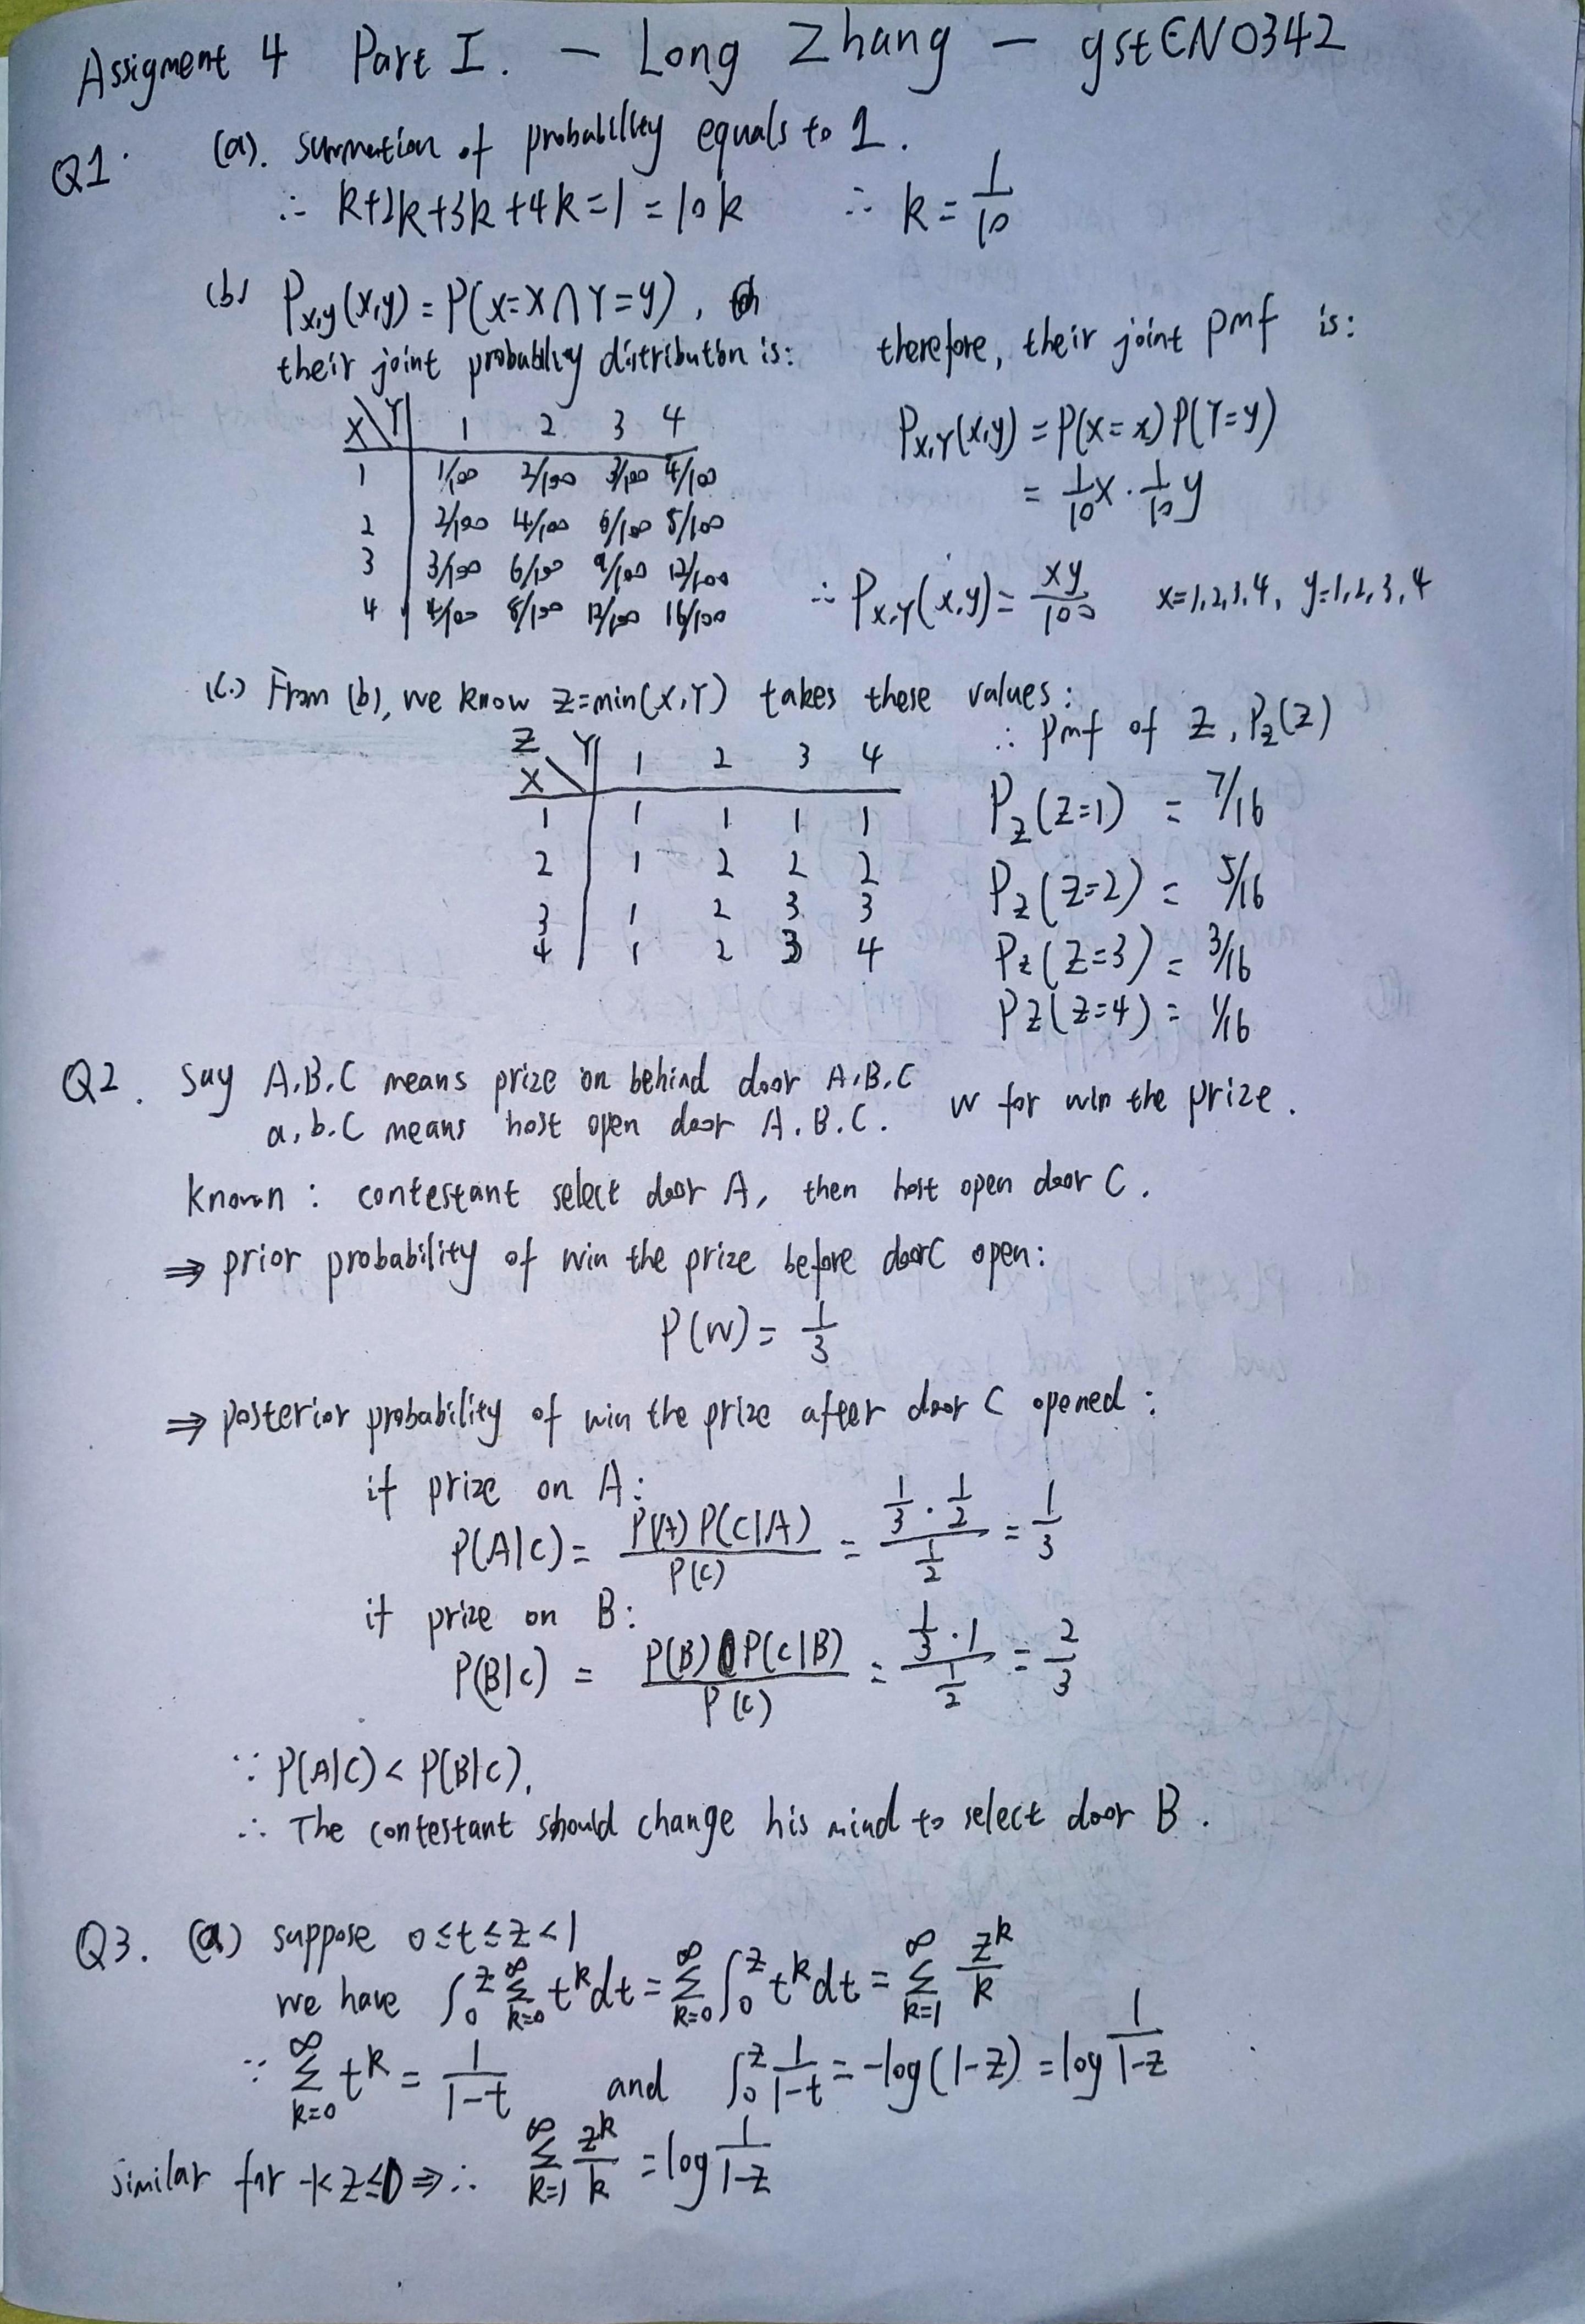 Assigment 4 Part I. — Long Zhang — gstEN0342
Q1. (a). summation of probability equals to 1.
∴ k+2k+3k+4k=1=10k ∴ k=1/10
(b) P_{X,Y}(x,y) = P(X=x∩Y=y),
their joint probability distribution is:
X\Y 1 2 3 4
1 1/100 2/100 3/100 4/100
2 2/100 4/100 6/100 8/100
3 3/100 6/100 9/100 12/100
4 4/100 8/100 12/100 16/100
therefore, their joint pmf is:
P_{X,Y}(x,y) = P(X=x)P(Y=y)
= 1/10 x · 1/10 y
∴ P_{X,Y}(x,y) = xy/100 x=1,2,3,4, y=1,2,3,4
(c) From (b), we know z=min(X,Y) takes these values:
Z X\Y 1 2 3 4
1 1 1 1 1
2 1 2 2 2
3 1 2 3 3
4 1 2 3 4
∴ pmf of Z, P_Z(z)
P_Z(z=1) = 7/16
P_Z(z=2) = 5/16
P_Z(z=3) = 3/16
P_Z(z=4) = 1/16
Q2. say A,B,C means prize on behind door A,B,C
a,b,c means host open door A,B,C. W for win the prize.
known: contestant select door A, then host open door C.
⇒ prior probability of win the prize before door C open:
P(W) = 1/3
⇒ posterior probability of win the prize after door C opened:
if prize on A:
P(A|c) = P(A)P(c|A)/P(c) = (1/3 · 1/2)/(1/2) = 1/3
if prize on B:
P(B|c) = P(B)P(c|B)/P(c) = (1/3 · 1)/(1/2) = 2/3
∵ P(A|c) < P(B|c),
∴ The contestant should change his mind to select door B.
Q3. (a) suppose 0≤t≤z<1
we have ∫_0^z Σ_{k=0}^∞ t^k dt = Σ_{k=0}^∞ ∫_0^z t^k dt = Σ_{k=1}^∞ z^k/k
∵ Σ_{k=0}^∞ t^k = 1/(1-t) and ∫_0^z 1/(1-t) = -log(1-z) = log 1/(1-z)
similar for -1<z≤0 ⇒ ∴ Σ_{k=1}^∞ z^k/k = log 1/(1-z)